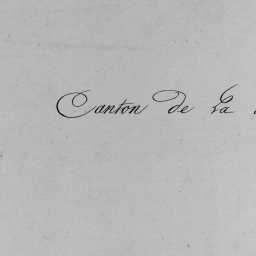 Canton de La